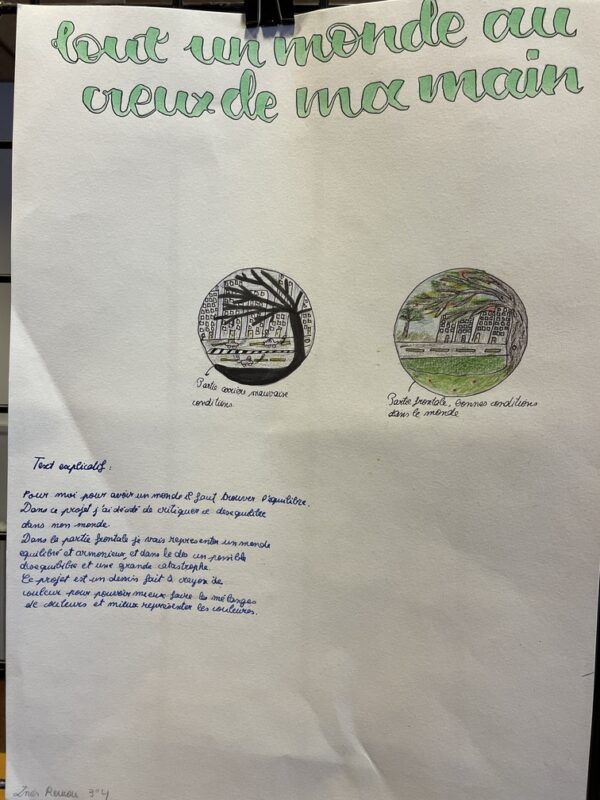 tout un monde au
creux de ma main
Partie arrière mauvaise
conditions
Partie frontale, bonnes conditions
dans le monde
Text explicatif:
Pour moi pour avoir un monde il faut trouver l'équilibre.
Dans ce projet j'ai décidé de critiquer ce desequilibre
dans mon monde
Dans la partie frontale je vais representer un monde
equilibré et armonieux, et dans le dos un possible
desequilibre et une grande catastrophe.
Ce projet est un dessin fait à crayon de
couleur pour pouvoir mieux faire les mélanges
de couleurs et mieux représenter les couleures.
Ines